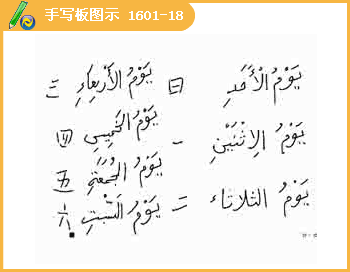 手写板图示 1601-18
يَوْمُ الْأَحَدِ 日
يَوْمُ الاِثْنَيْنِ 一
يَوْمُ الثلاثاء 二
يَوْمُ الأَرْبِعَاءِ 三
يَوْمُ الخَمِيسِ 四
يَوْمُ الجُمُعَةِ 五
يَوْمُ السَّبْتِ 六